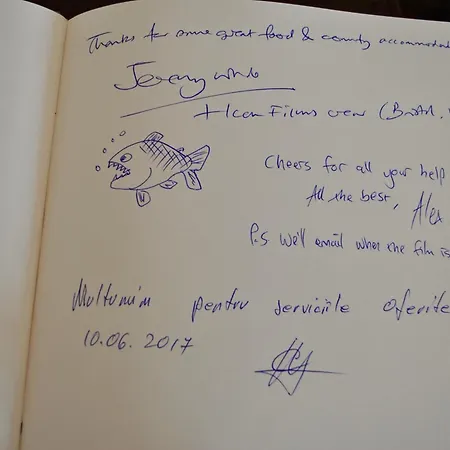 Thanks for some great food & comfy accommodat
Jeremy Wade
+ Icon Films crew (Bristol,
Cheers for all your help
All the best, Alex
P.S We'll email when the film is
Multumim pentru serviciile oferite
10.06.2017